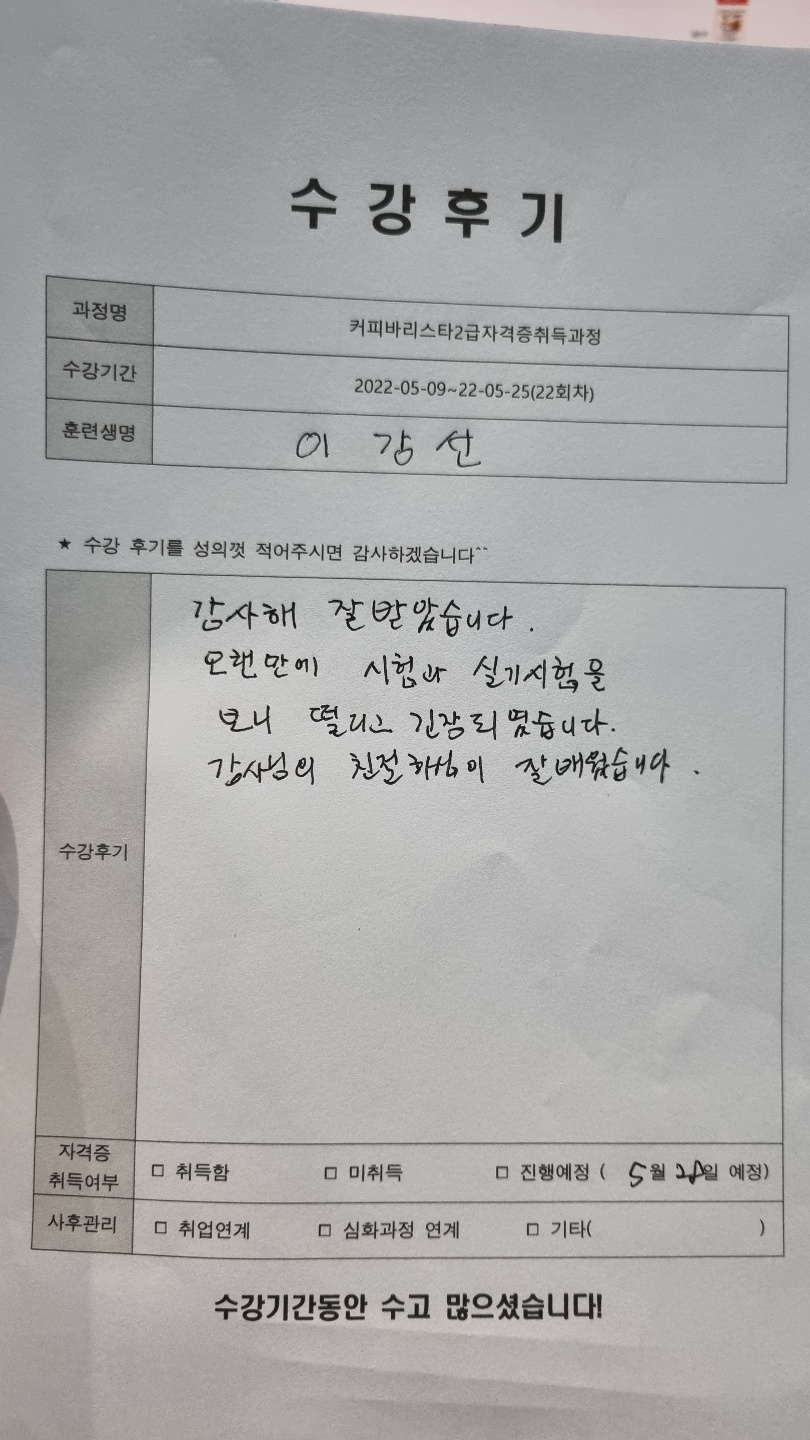 수강후기
과정명 커피바리스타2급자격증취득과정
수강기간 2022-05-09~22-05-25(22회차)
훈련생명 이강선
★ 수강 후기를 성의껏 적어주시면 감사하겠습니다^^
수강후기
감사해 잘 받았습니다.
오랜만에 시험과 실기시험을
보니 떨리고 긴장되였습니다.
강사님의 친절하심이 잘 배웠습니다.
자격증 취득여부 □ 취득함 □ 미취득 □ 진행예정 ( 5월 28일 예정)
사후관리 □ 취업연계 □ 심화과정 연계 □ 기타( )
수강기간동안 수고 많으셨습니다!